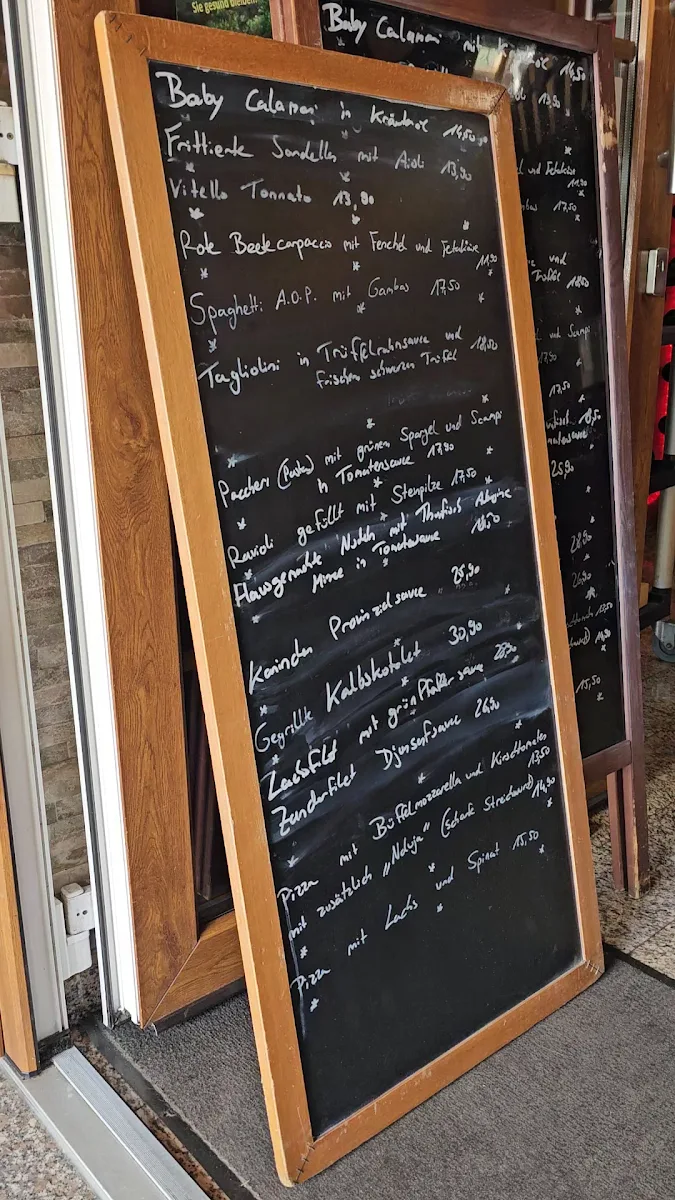 Sie gesund bleiben
Baby Calamari in Kräuteröl 14,50
Frittiente Sardellen mit Aioli 13,90
Vitello Tonnato 13,90
Rote Beete carpaccio mit Fenchel und Fetakäse
11,90
Spaghetti A.O.P. mit Gambas 17,50
Tagliolini in Trüffelrahmsauce und
frischen schwarzen Trüffel 18,50
Paccheri (Pasta) mit grünem Spargel und Scampi
in Tomatensauce 17,90
Ravioli gefüllt mit Steinpilze 17,50
Hausgemachte Nudeln mit Thunfisch
in Tomatensauce 18,50
Provinzialsauce 25,90
Gegrillte Kalbskotelet 30,90
mit grün Pfeffer sauce
Zanderfilet Dijonsenfsauce 26,90
Pizza mit Büffelmozzarella und Kirschtomaten
13,50
mit zusätzlich „Nduja" (scharfe Streichwurst) 14,90
Pizza mit Lachs und Spinat 15,50
Baby Calamari mit 14,50
13,90
und Fetakäse
11,90
17,50
und
Trüffel 18,50
und Scampi
17,50
17,50
25,90
28,90
26,90
15,50